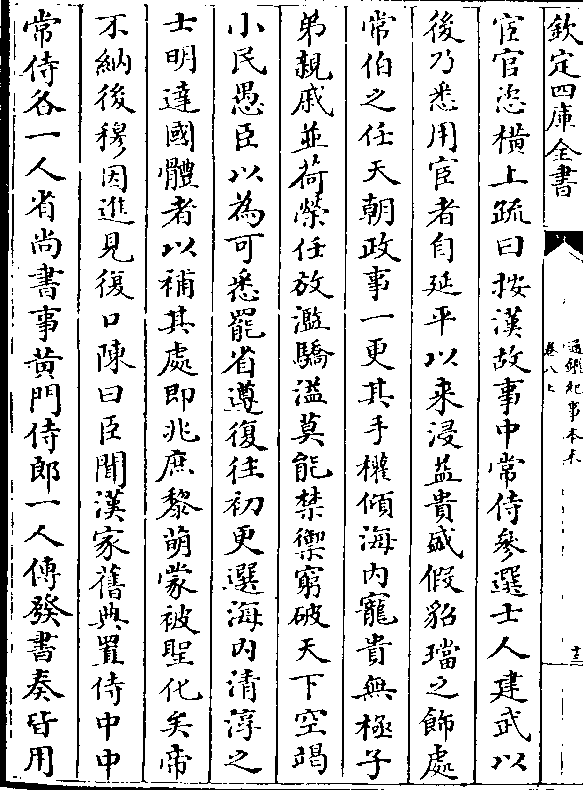 欽定四庫全書
通鑑紀事本末
卷八上
十三
宦官恣橫上疏曰按漢故事中常侍參選士人建武以
後乃悉用宦者自延平以來浸益貴盛假貂璫之飾處
常伯之任天朝政事一更其手權傾海内寵貴無極子
弟親戚並荷榮任放濫驕溢莫能禁禦窮破天下空竭
小民愚臣以為可悉罷省遵復往初更選海内清淳之
士明達國體者以補其處即兆庶黎萌蒙被聖化矣帝
不納後穆因進見復口陳曰臣聞漢家舊典置侍中中
常侍各一人省尚書事黄門侍郎一人傳發書奏皆用